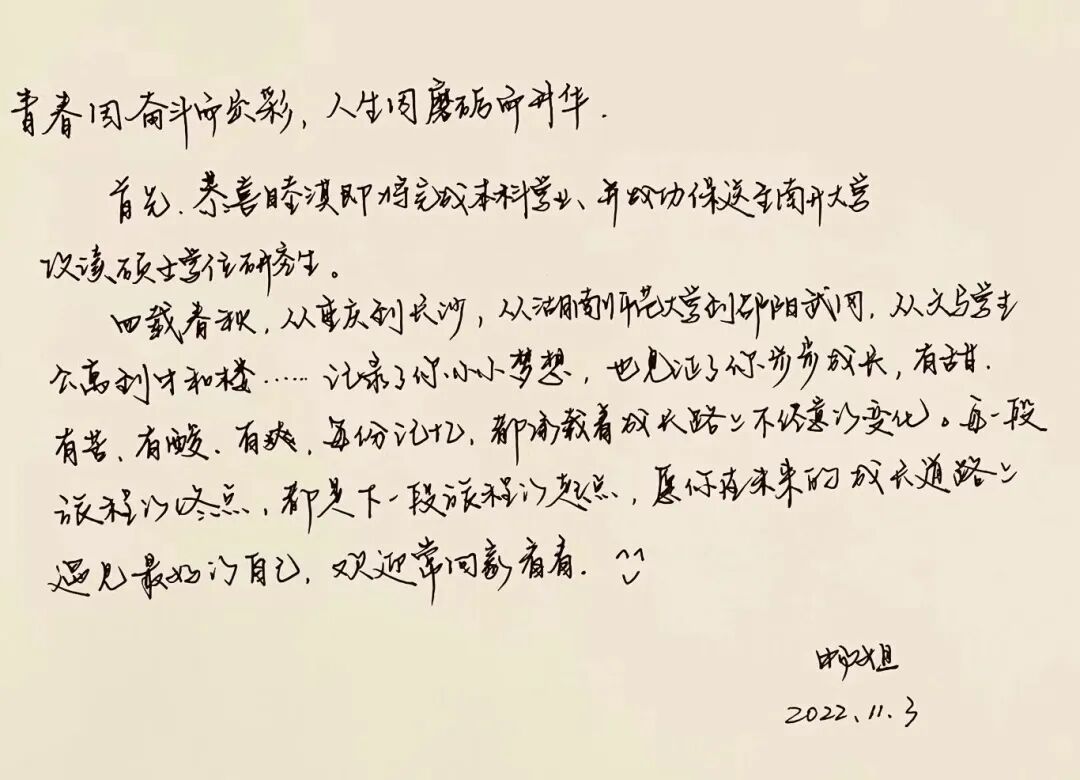 青春因奋斗而出彩，人生因磨砺而升华.
首先、恭喜睦淇即将完成本科学业、并成功保送至南开大学
攻读硕士学位研究生。
四载春秋，从重庆到长沙，从湖南师范大学到邵阳武冈，从文与学生
公寓到才和楼……记录了你小小梦想，也见证了你步步成长，有甜.
有苦、有酸、有爽，每份记忆，都承载着成长路上不经意的变化。每一段
旅程的终点，都是下一段旅程的起点，愿你在未来的成长道路上
遇见最好的自己，欢迎常回家看看.
姐
2022.11.3